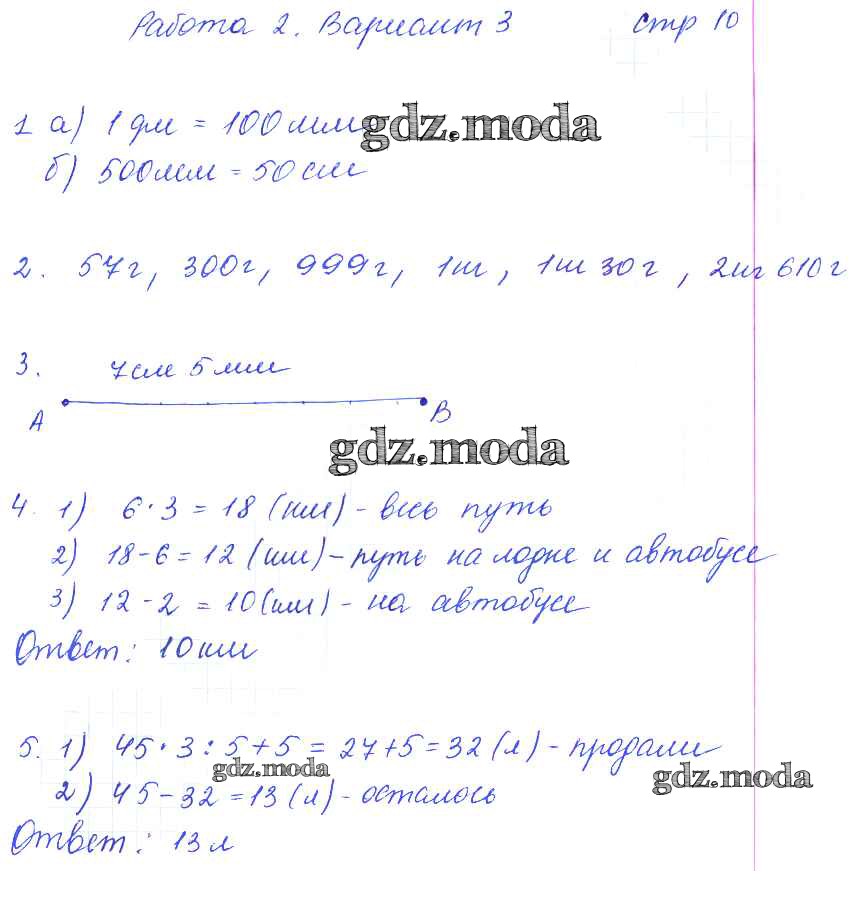 Работа 2. Вариант 3 стр 10
1 а) 1 дм = 100 мм
gdz.moda
б) 500мм = 50 см
2. 57г, 300г, 999г, 1кг, 1кг 30г, 2кг 610г
3. 7см 5мм
А В
gdz.moda
4. 1) 6·3 = 18 (км) - весь путь
2) 18-6 = 12 (км) - путь на лодке и автобусе
3) 12-2 = 10 (км) - на автобусе
Ответ: 10 км
5. 1) 45·3:5+5 = 27+5 = 32 (л) - продали
gdz.moda gdz.moda
2) 45-32 = 13 (л) - осталось
Ответ: 13 л